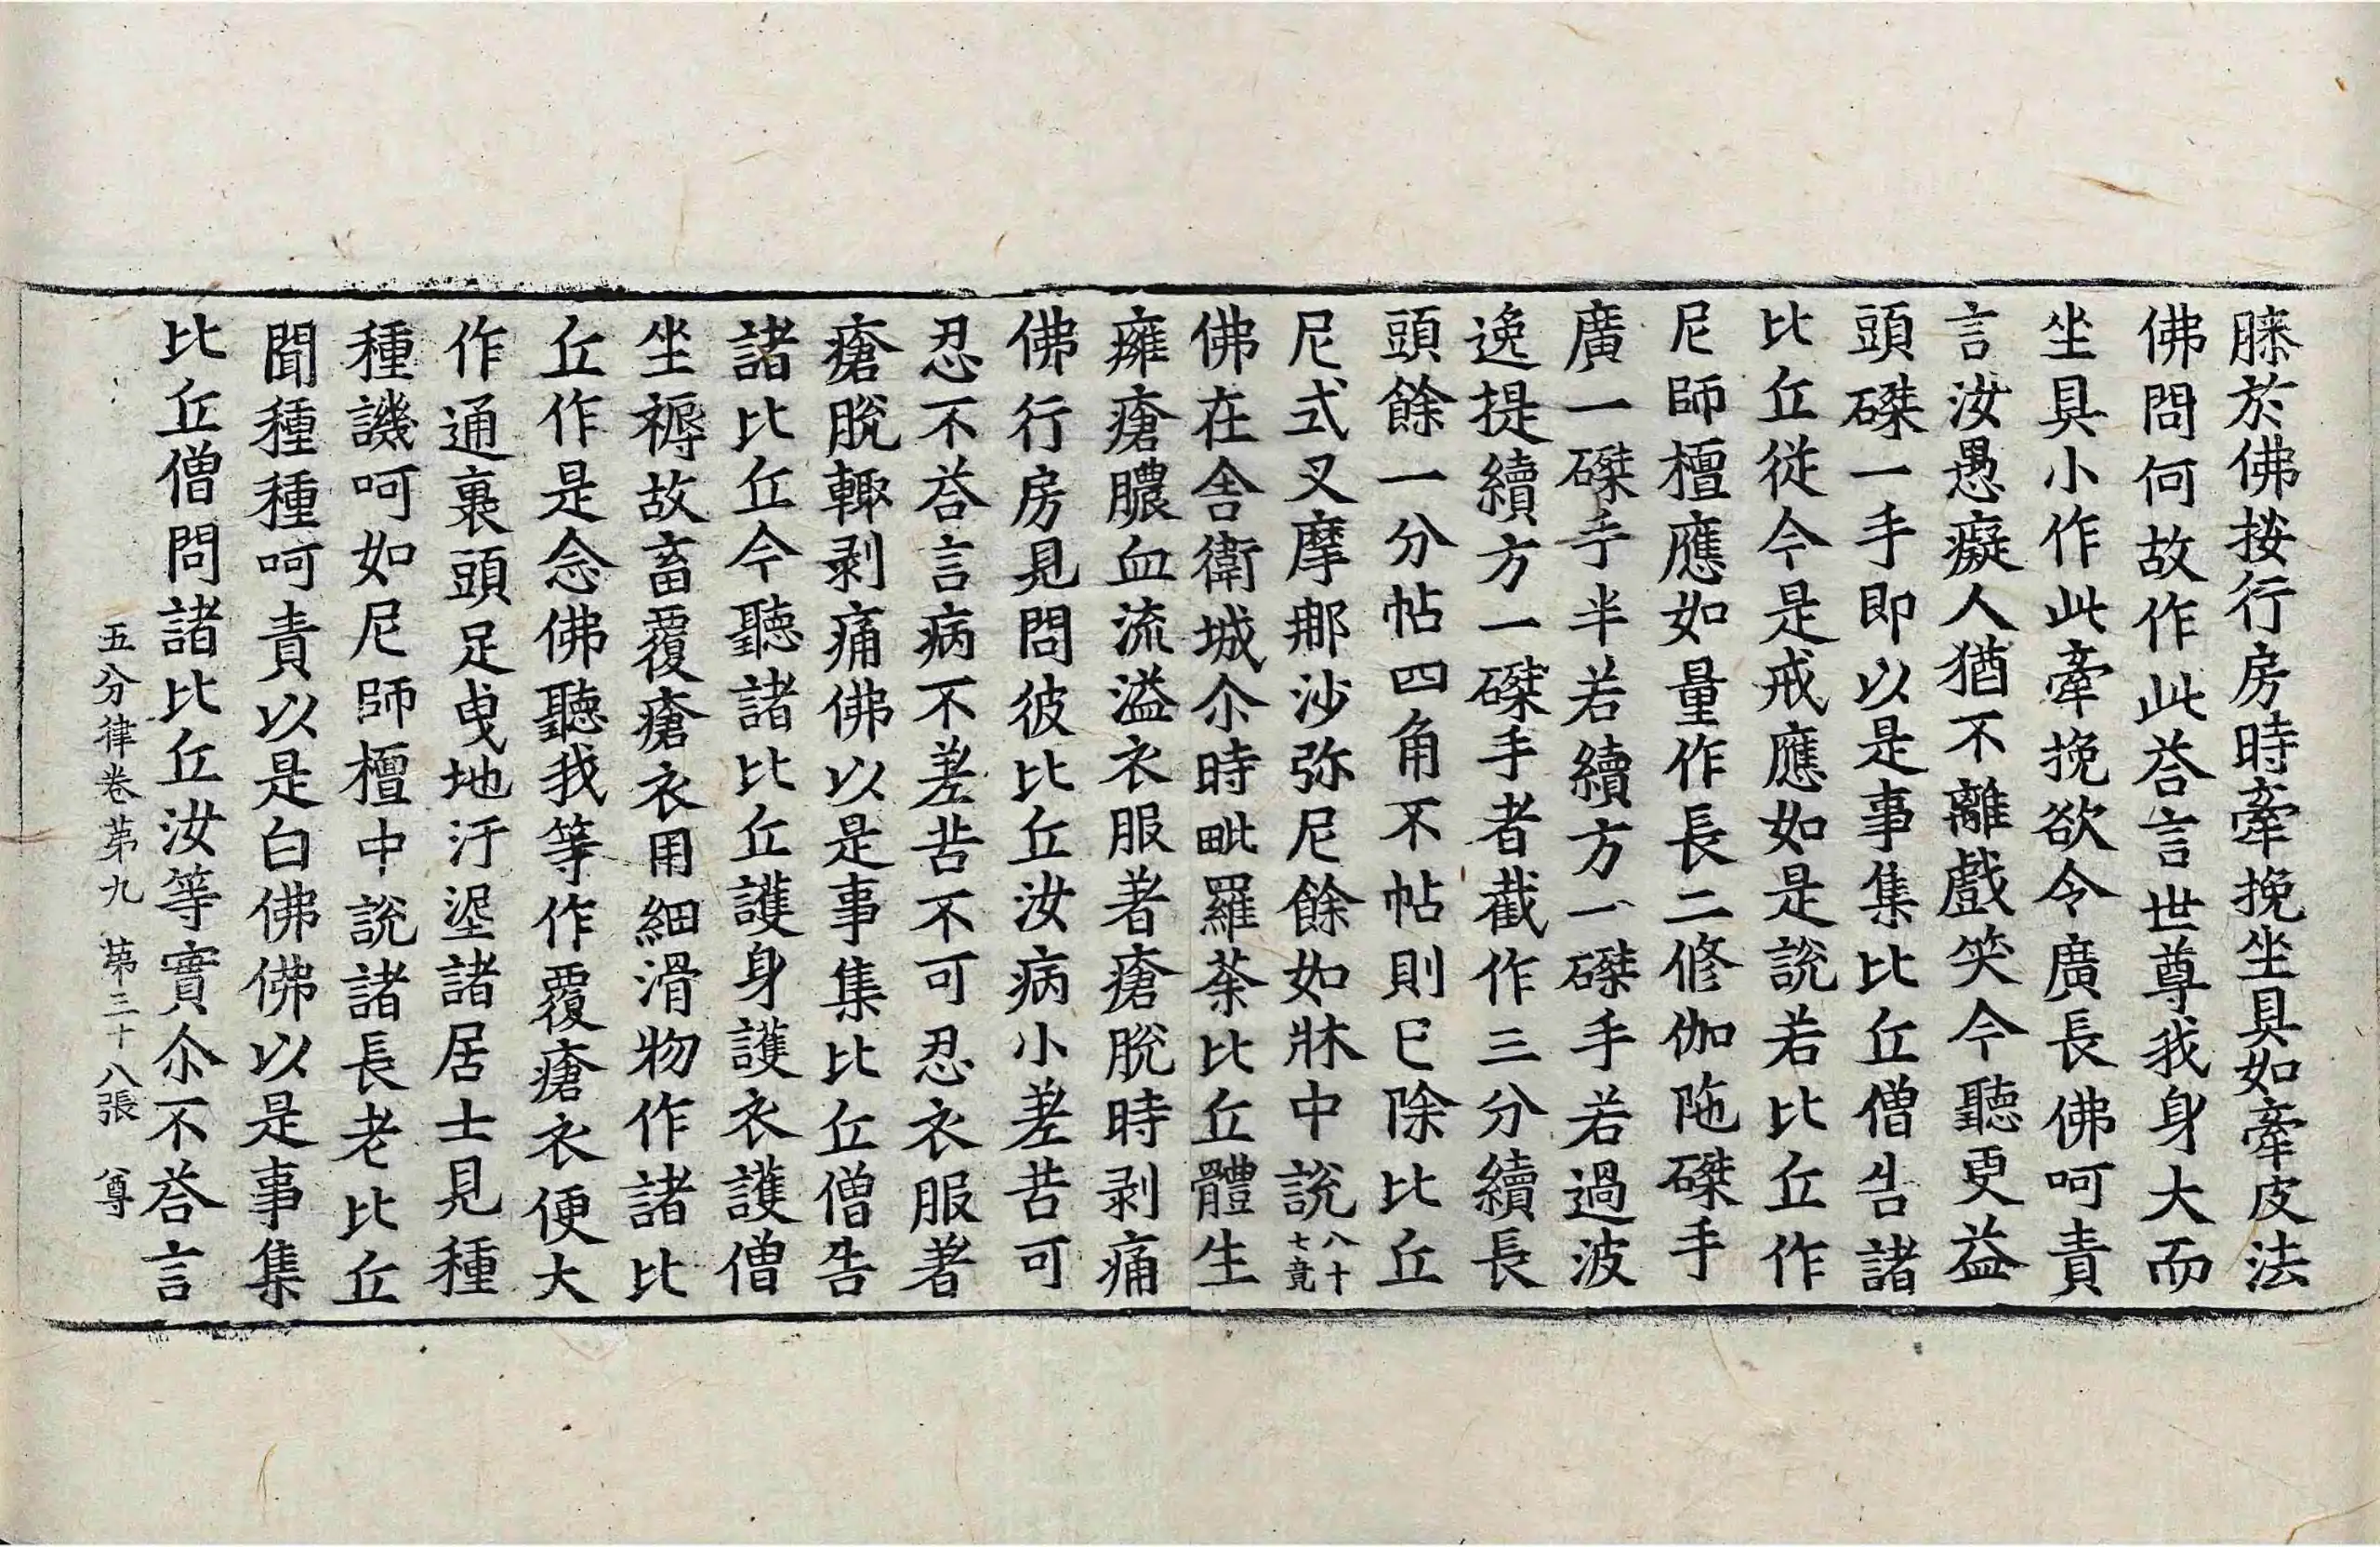 膝於佛按行房時牽挽坐具如牽皮法
佛問何故作此荅言世尊我身大而
坐具小作此牽挽欲令廣長佛呵責
言汝愚癡人猶不離戲笑今聽更益
頭磔一手即以是事集比丘僧告諸
比丘從今是戒應如是說若比丘作
尼師檀應如量作長二修伽陁磔手
廣一磔手半若續方一磔手若過波
逸提續方一磔手者截作三分續長
頭餘一分帖四角不帖則已除比丘
尼式叉摩那沙弥尼餘如牀中說八十七竟
佛在舍衛城尒時毗羅荼比丘體生
癰瘡膿血流溢衣服著瘡脫時剥痛
佛行房見問彼比丘汝病小差苦可
忍不荅言病不差苦不可忍衣服著
瘡脫輙剥痛佛以是事集比丘僧告
諸比丘今聽諸比丘護身護衣護僧
坐褥故畜覆瘡衣用細滑物作諸比
丘作是念佛聽我等作覆瘡衣便大
作通裹頭足曳地汙埿諸居士見種
種譏呵如尼師檀中說諸長老比丘
聞種種呵責以是白佛佛以是事集
比丘僧問諸比丘汝等實尒不荅言
五分律卷苐九 苐三十八張 尊